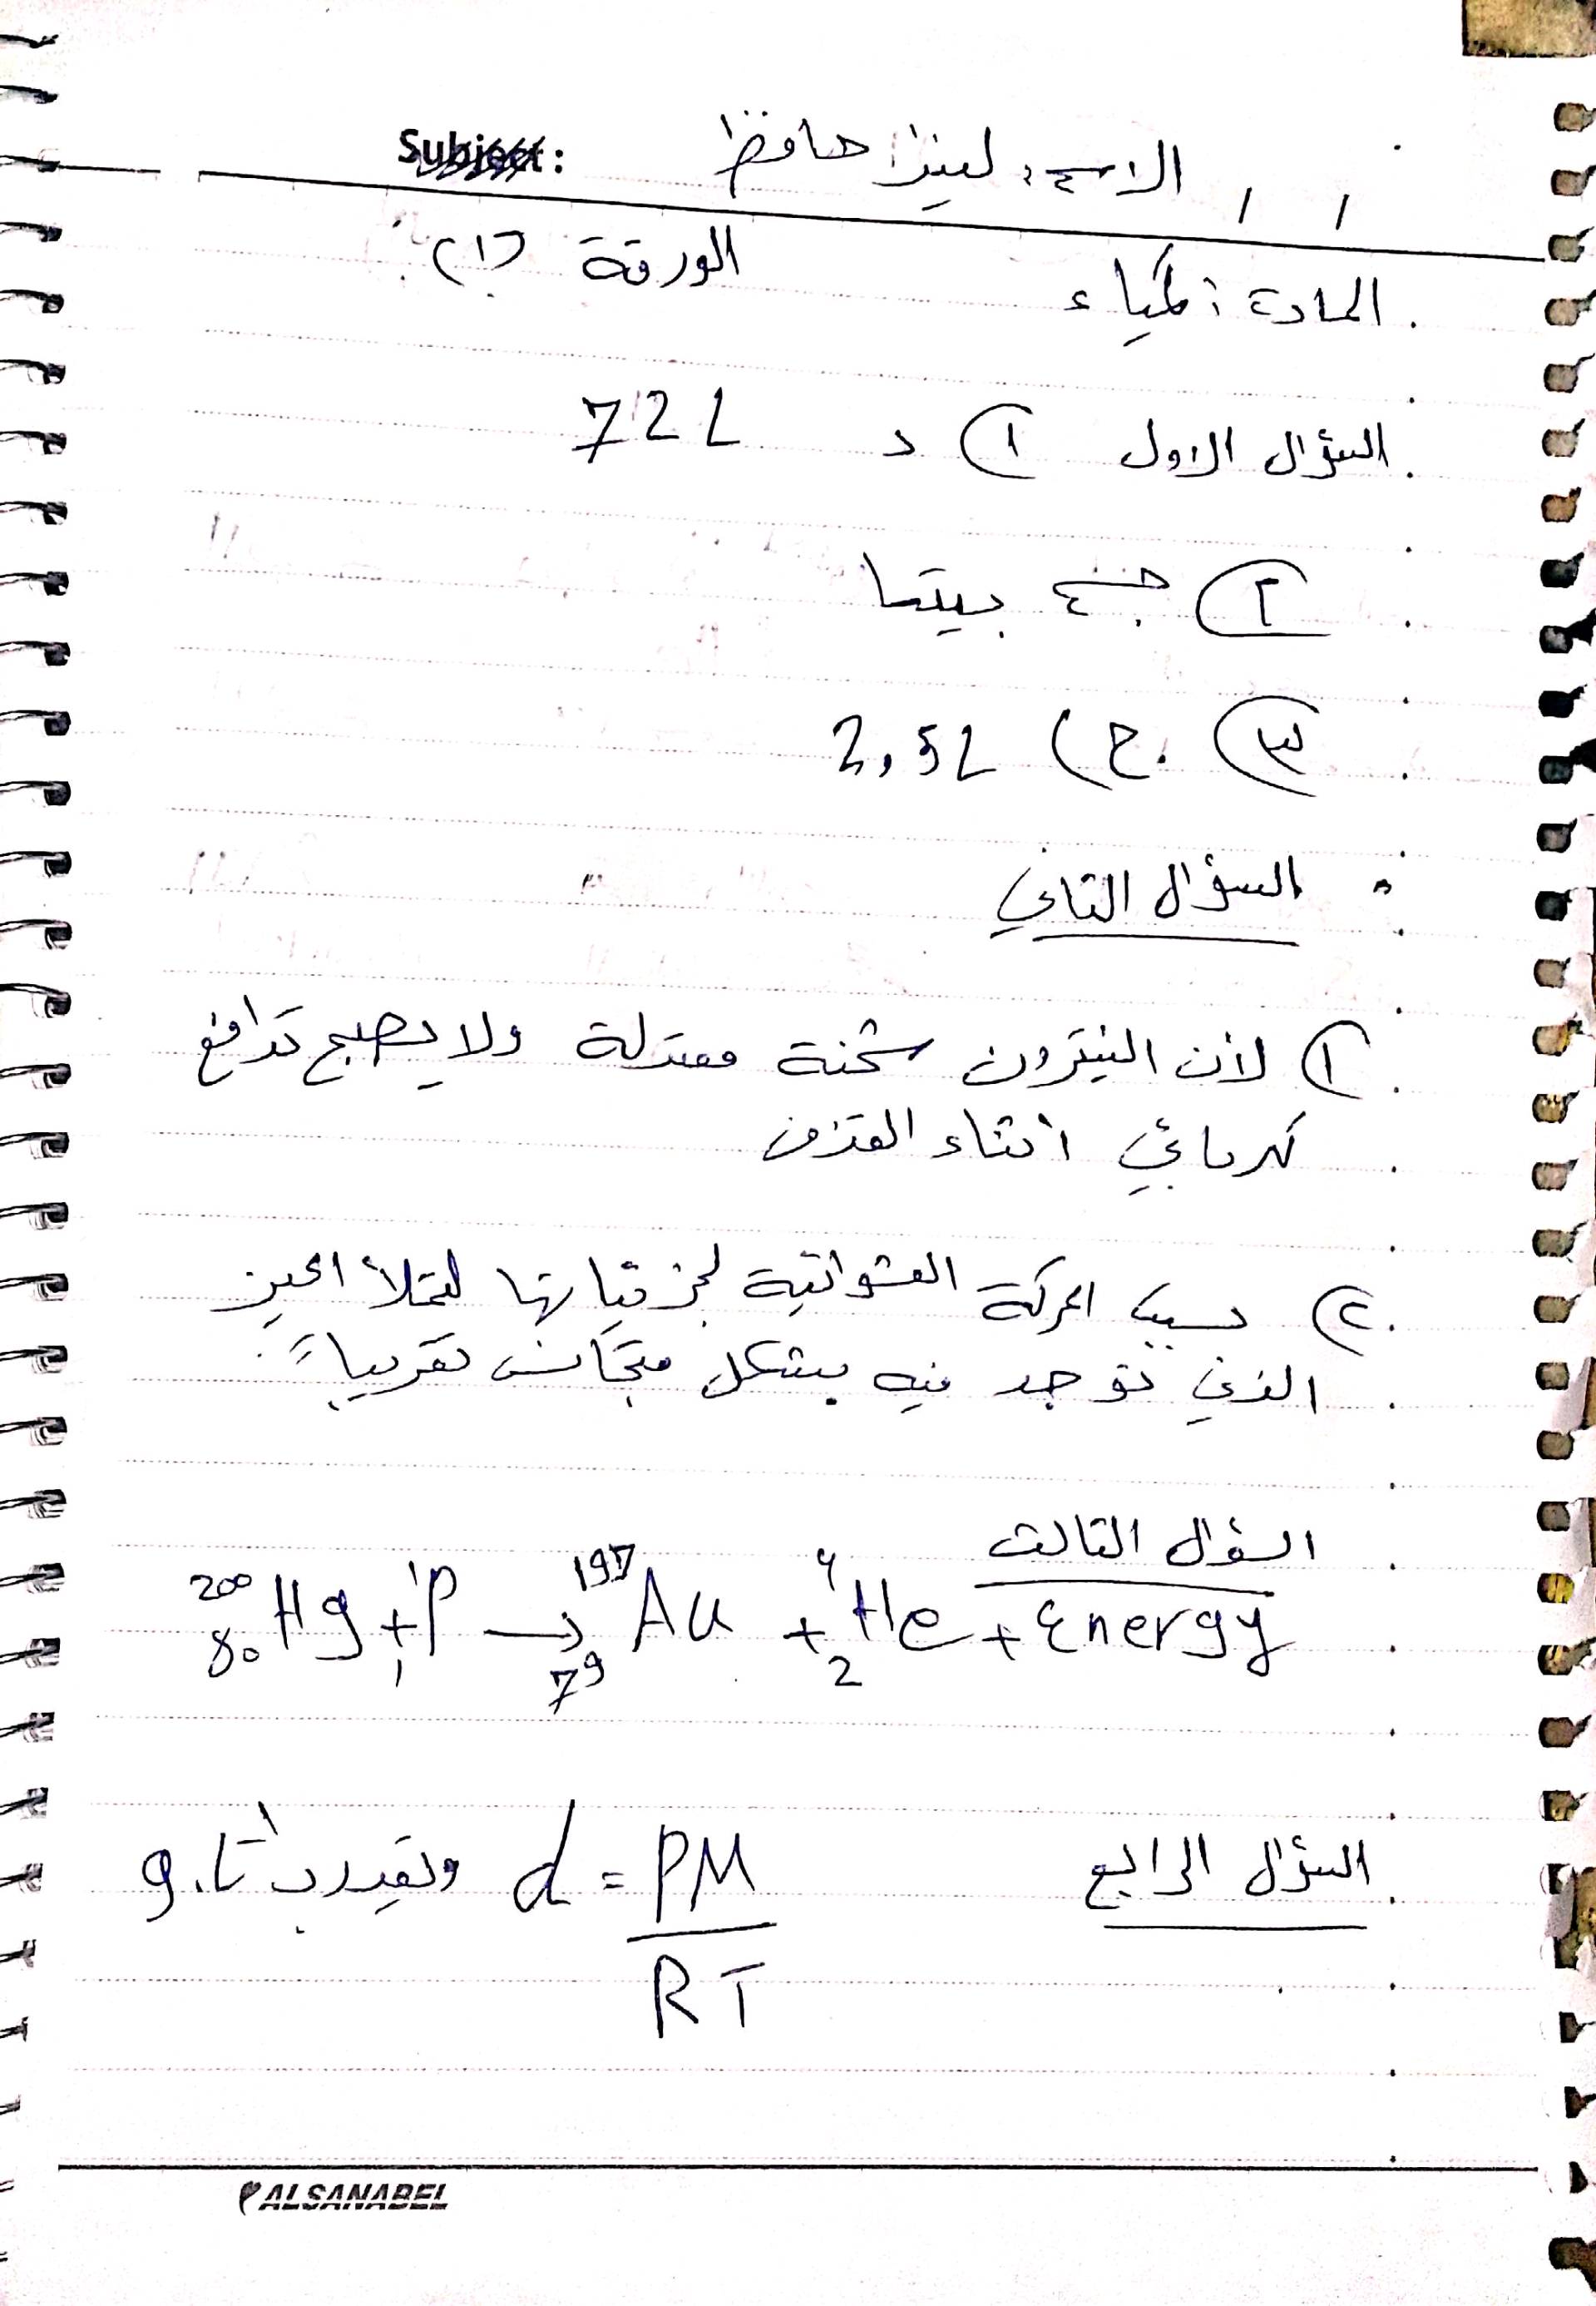 Subject:
الاسم: ليندا حافظ
المادة: كيمياء الورقة (١)
السؤال الاول ① د 72L
② جسيم بيتا
③ ج) 2,5L
السؤال الثاني
① لأن النيترون شحنة معتدلة ولا يصبح تدافع
كهربائي أثناء القذف
② بسبب الحركة العشوائية لجزيئاتها لتملأ الحيز
الذي توجد فيه بشكل متجانس تقريباً.
السؤال الثالث
²⁰⁰₈₀Hg + ¹₁P → ¹⁹⁷₇₉Au + ⁴₂He + Energy
السؤال الرابع d = PM / RT وتقدر ب
ALSANABEL